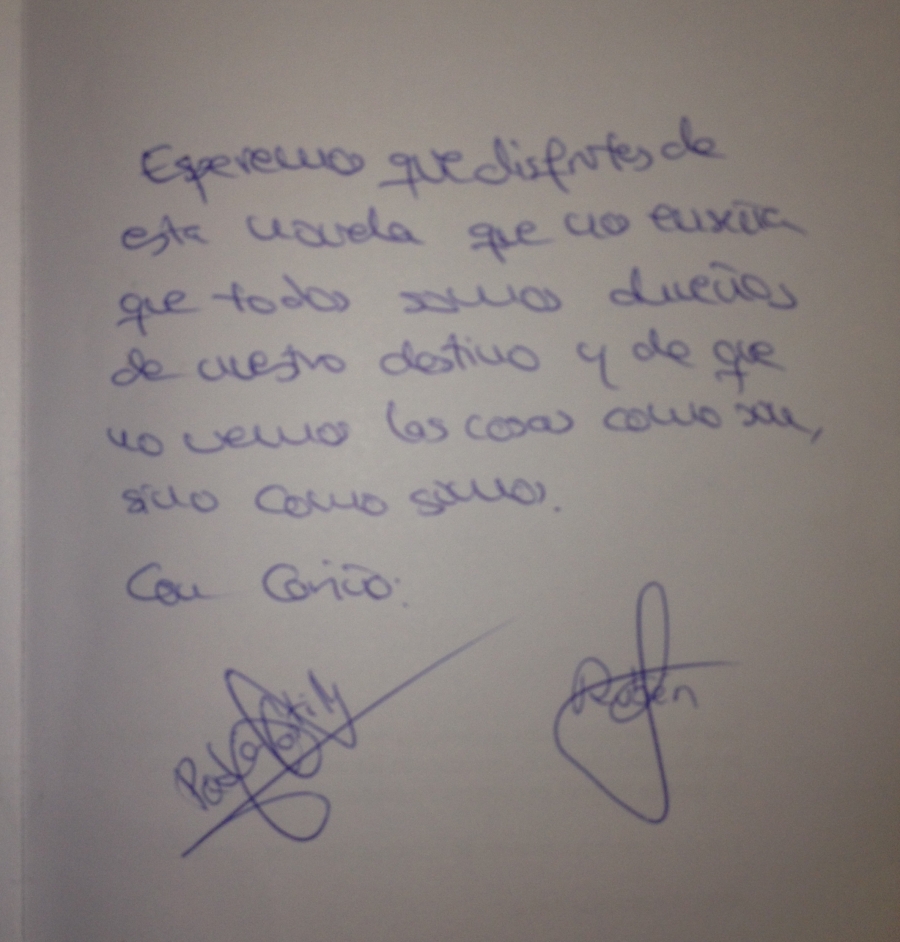 Esperemos que disfrutes de
esta novela que nos enseña
que todos somos dueños
de nuestro destino y de que
no vemos las cosas como son,
sino como somos.
Con Cariño.
Rubén